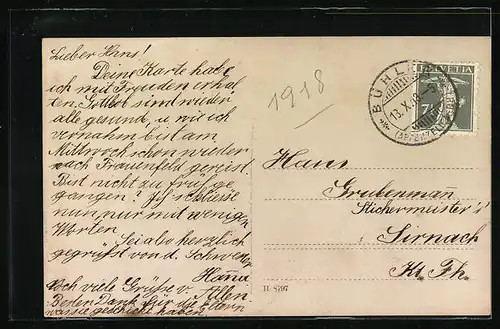 Lieber Hans!
Deine Karte habe
ich mit Freuden erhal-
ten. Selbst sind wieder
alle gesund, u. wie ich
vernahm bist am
Mittwoch schon wieder
nach Frauenfeld gereist.
Bist nicht zu früh ge-
gangen? Ich schliesse
nun nur mit wenigen
Worten.
Sei also herzlich
gegrüsst von d. Schwester
Hanna
Noch viele Grüsse v. Allen
Besten Dank für die
was sie geschickt haben.
1918
HELVETIA
7½
BÜHLER
13.X.18.-9
(APPENZELL)
Hans
Grubenman
Stickermeister's!
Sirnach
Kt. Th.
II 8797